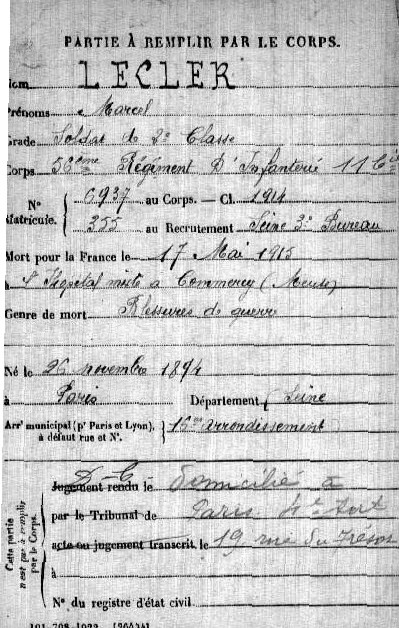 PARTIE À REMPLIR PAR LE CORPS.
Nom LECLER
Prénoms Marcel
Grade Soldat de 2e Classe
Corps 56ème Régiment D'Infanterie 11 Cie
N° Matricule. { 6937 au Corps. — Cl. 1914
355 au Recrutement Seine 3e Bureau
Mort pour la France le 17 Mai 1915
à l'Hopital mixte à Commercy (Meuse)
Genre de mort Blessures de guerre
Né le 26 novembre 1894
à Paris Département Seine
Arrt municipal (pr Paris et Lyon), à défaut rue et N°. } 16me arrondissement
Cette partie n'est pas à remplir par le Corps.
D-C
Jugement rendu le domicilié à
par le Tribunal de Paris 4e Arrt
acte ou jugement transcrit le 19 rue du Trésor
à
N° du registre d'état civil